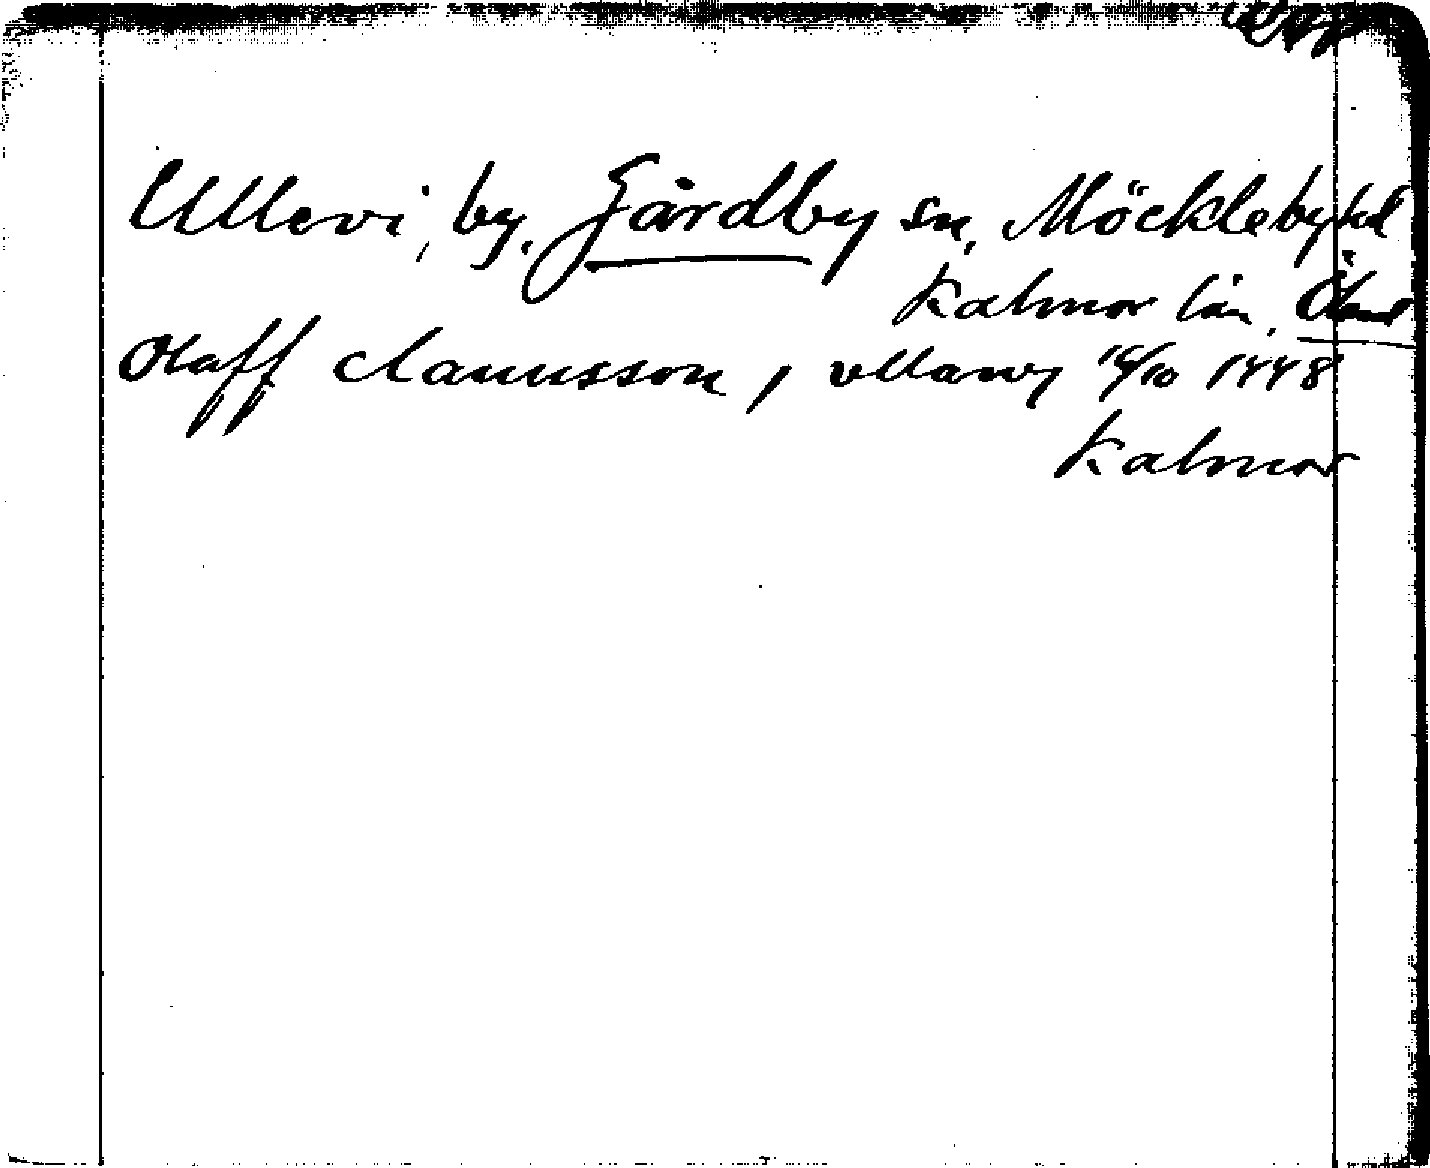 Ullevi, by, Gårdby sn, Möckleby hd
Kalmar län, Öland
Olaff clauusson, vllawy 16/10 1448
Kalmar